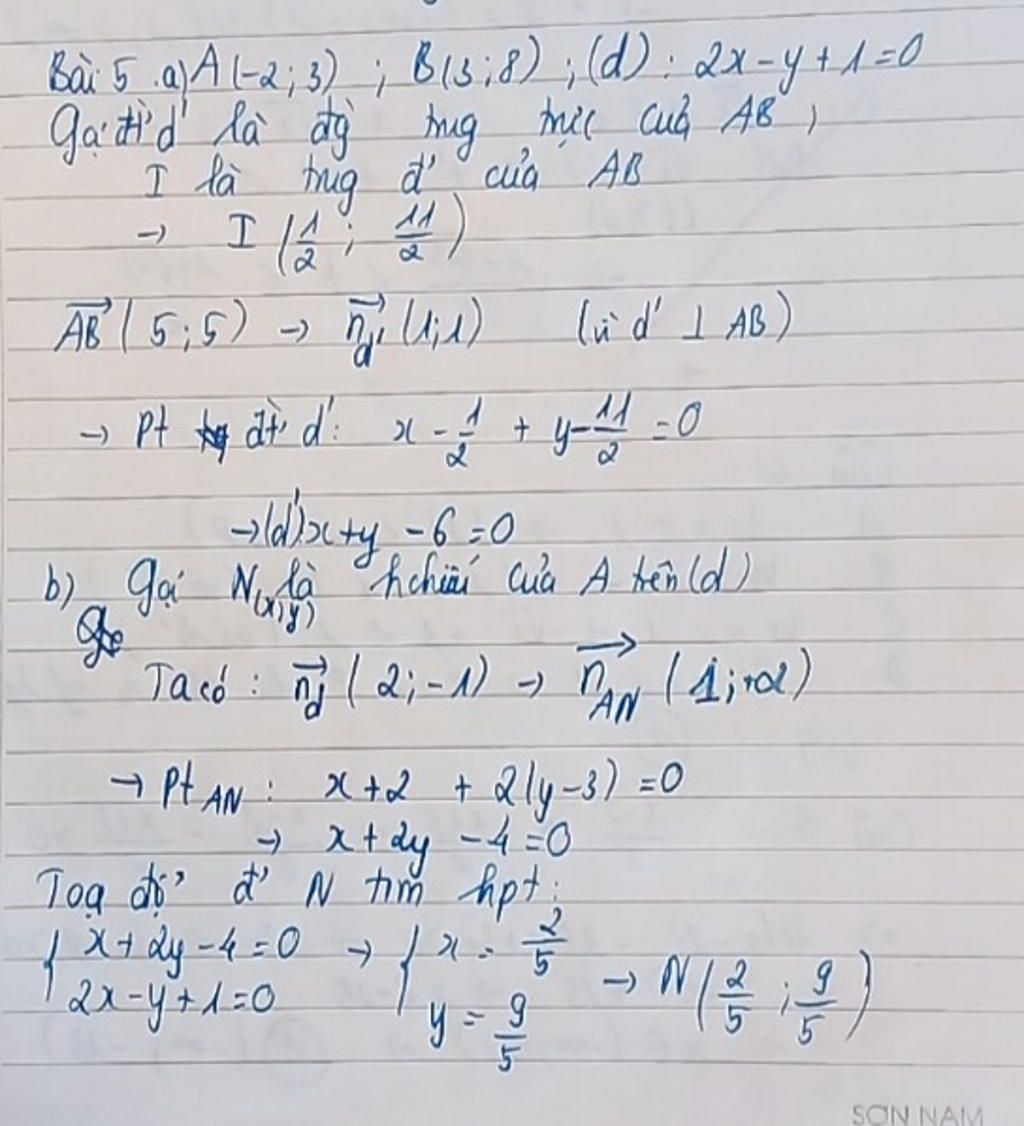 Bài 5 a) A(-2; 3) ; B(3; 8) ; (d): 2x - y + 1 = 0
Gọi đt' d' là đg trug trực của AB,
I là trug đ' của AB
→ I (1/2 ; 11/2)
AB→ (5; 5) → n→d' (1; 1) (vì d' ⊥ AB)
→ Pt đt' d': x - 1/2 + y - 11/2 = 0
→ (d') x + y - 6 = 0
b) Gọi N(x; y) là hchiếu của A trên (d)
Ta có : n→d (2; -1) → n→AN (1; +2)
→ Pt AN : x + 2 + 2(y - 3) = 0
→ x + 2y - 4 = 0
Toạ độ đ' N tìm hpt:
{ x + 2y - 4 = 0 → { x = 2/5
2x - y + 1 = 0 y = 9/5 → N(2/5 ; 9/5)
SƠN NAM